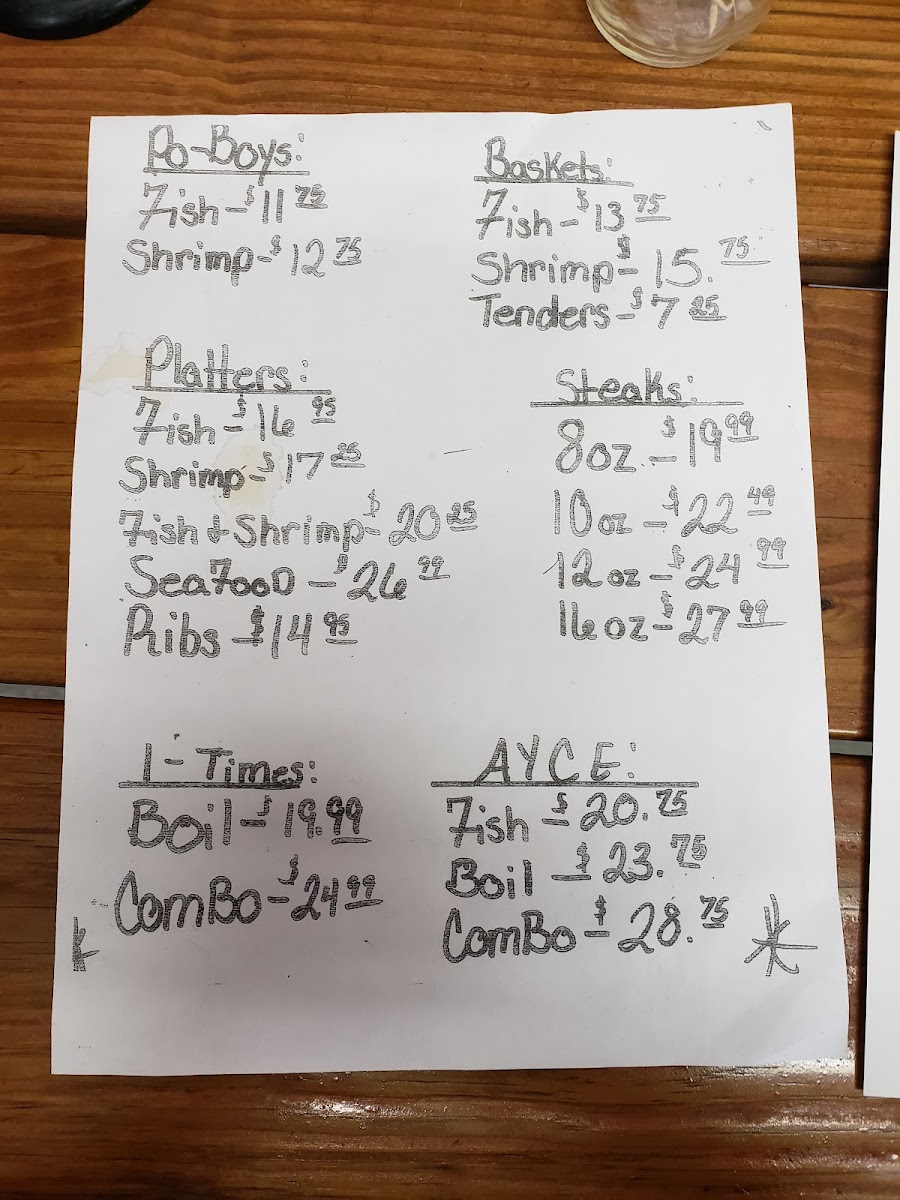 Po-Boys:
Fish - $11 75
Shrimp - $12 75
Baskets:
Fish - $13 75
Shrimp - $15. 75
Tenders - $7 25
Platters:
Fish - $16 95
Shrimp - $17 25
Fish & Shrimp - $20 25
SeaFood - $26 99
Ribs - $14 95
Steaks:
8 oz - $19 99
10 oz - $22 49
12 oz - $24 99
16 oz - $27 99
1 - Times:
Boil - $19.99
ComBo - $24 99
AYCE:
Fish - $20.75
Boil - $23.75
ComBo - $28.75